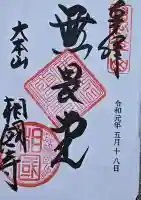 奉拝
無畏堂
令和元年五月十八日
大本山
相國寺